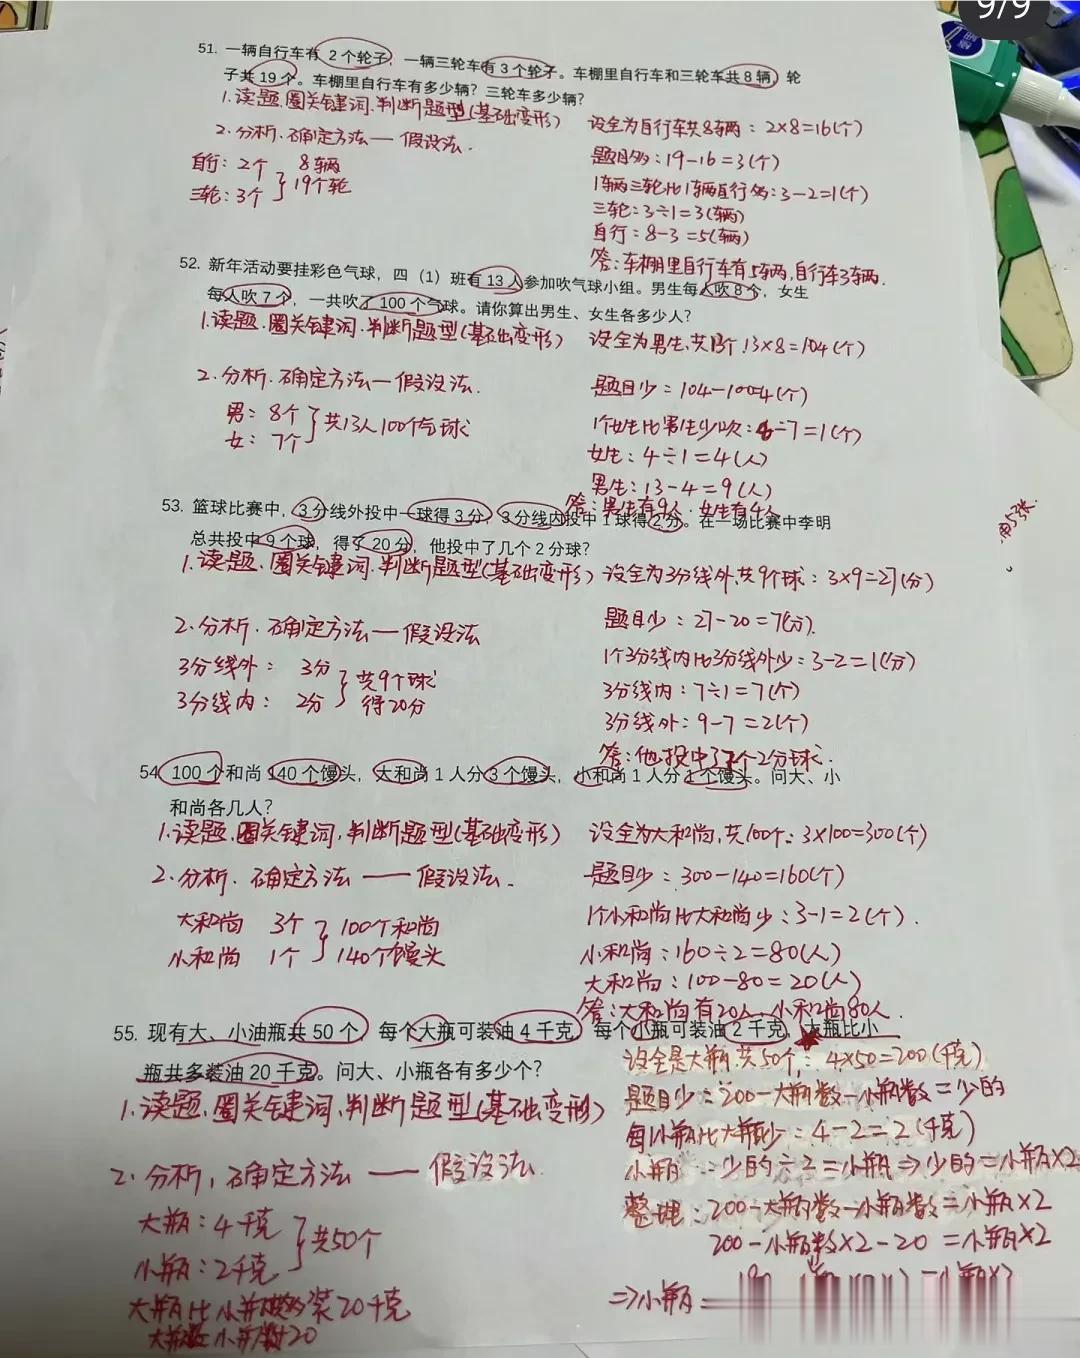 9/9
51. 一辆自行车有 2 个轮子，一辆三轮车有 3 个轮子。车棚里自行车和三轮车共 8 辆，轮
子共 19 个。车棚里自行车有多少辆？三轮车多少辆？
1.读题.圈关键词.判断题型(基础变形)
2.分析.确定方法——假设法.
自行: 2个 8辆
三轮: 3个 19个轮
设全为自行车共8辆: 2×8=16(个)
题目多: 19-16=3(个)
1辆三轮比1辆自行多: 3-2=1(个)
三轮: 3÷1=3(辆)
自行: 8-3=5(辆)
答:车棚里自行车有5辆,自行车3辆.
52. 新年活动要挂彩色气球，四（1）班有 13 人参加吹气球小组。男生每人吹 8 个，女生
每人吹 7 个，一共吹了 100 个气球。请你算出男生、女生各多少人？
1.读题.圈关键词.判断题型(基础变形)
2.分析.确定方法—假设法.
男: 8个
女: 7个
共13人100个气球
设全为男生,共13个:13×8=104(个)
题目少: 104-100=4(个)
1个女生比男生少吹: 8-7=1(个)
女生: 4÷1=4(人)
男生: 13-4=9(人)
答:男生有9人.女生有4人
53. 篮球比赛中，3 分线外投中一球得 3 分，3 分线内投中 1 球得 2 分。在一场比赛中李明
总共投中 9 个球，得了 20 分，他投中了几个 2 分球？
1.读题.圈关键词.判断题型(基础变形)
2.分析.确定方法——假设法
3分线外: 3分
3分线内: 2分
共9个球
得20分
设全为3分线外,共9个球: 3×9=27(分)
题目少: 27-20=7(分).
1个3分线内比3分线外少: 3-2=1(分)
3分线内: 7÷1=7(个)
3分线外: 9-7=2(个)
答:他投中了7个2分球.
54. 100 个和尚 140 个馒头，大和尚 1 人分 3 个馒头，小和尚 1 人分 1 个馒头。问大、小
和尚各几人？
1.读题.圈关键词,判断题型(基础变形)
2.分析.确定方法——假设法.
大和尚 3个
小和尚 1个
100个和尚
140个馒头
设全为大和尚,共100个: 3×100=300(个)
题目少: 300-140=160(个)
1个小和尚比大和尚少: 3-1=2(个).
小和尚: 160÷2=80(人)
大和尚: 100-80=20(人)
答:大和尚有20人,小和尚80人.
55. 现有大、小油瓶共 50 个，每个大瓶可装油 4 千克，每个小瓶可装油 2 千克，大瓶比小
瓶共多装油 20 千克。问大、小瓶各有多少个？
1.读题.圈关键词.判断题型(基础变形)
2.分析,确定方法——假设法.
大瓶: 4千克
小瓶: 2千克
共50个
大瓶比小瓶多装20千克
设全是大瓶,共50个: 4×50=200(千克)
题目少: 200-大瓶数-小瓶数=少的
每1小瓶比大瓶少: 4-2=2(千克)
小瓶: 少的÷2=小瓶⇒少的=小瓶×2
整理: 200-大瓶数-小瓶数=小瓶×2
200-小瓶数×2-20=小瓶×2
⇒小瓶=